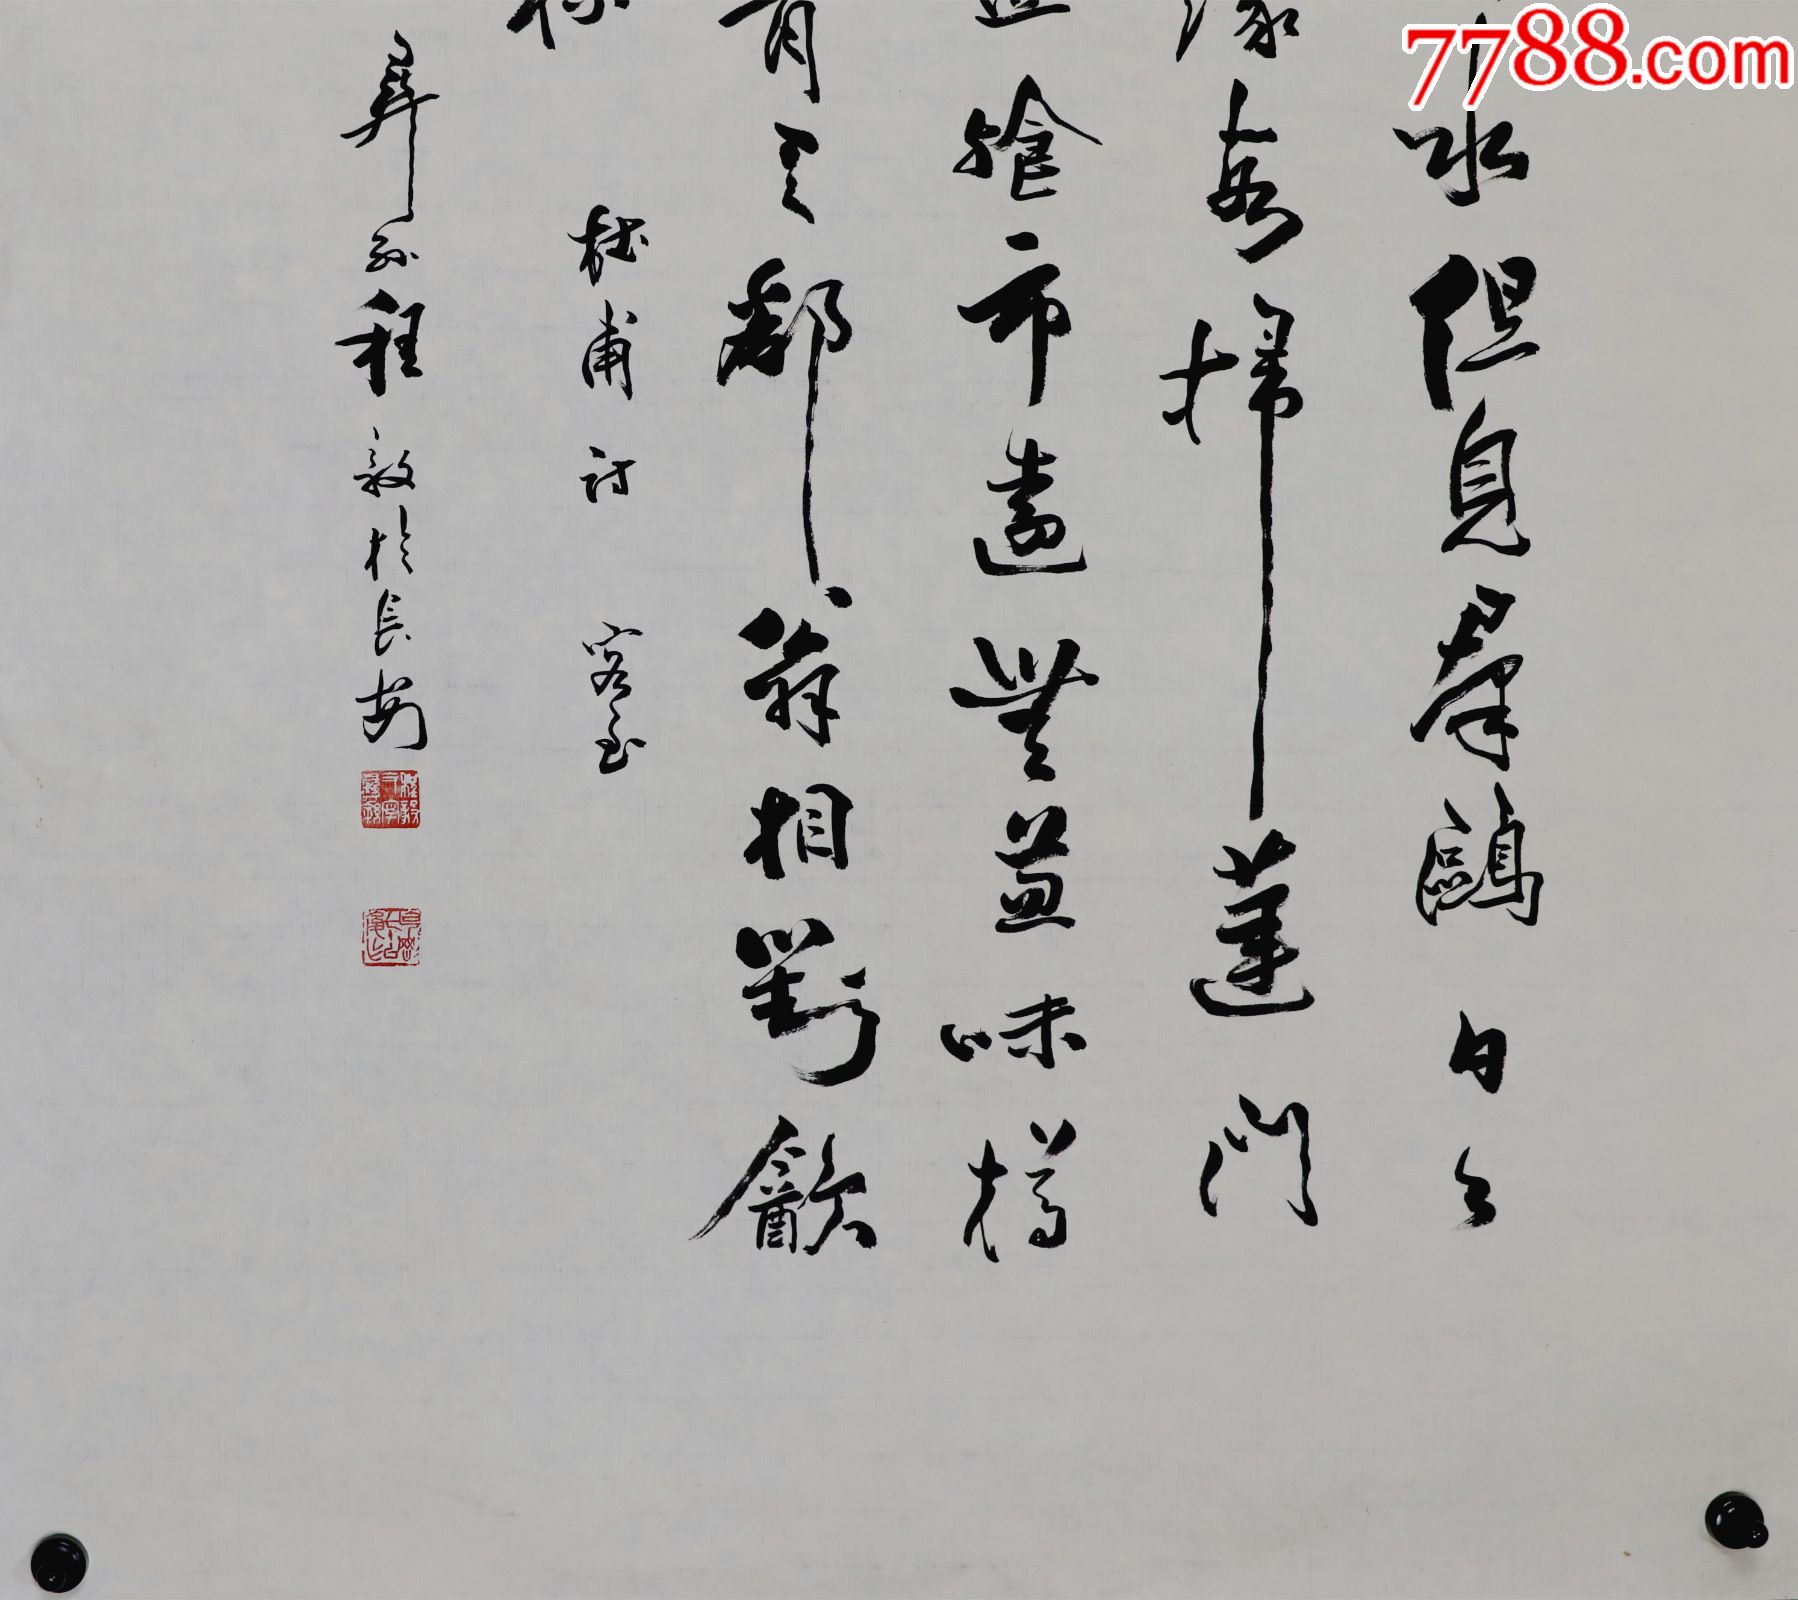 7788.com
水但見羣鷗日々
緣客掃蓬門
飧市遠無兼味樽
肯与鄰翁相對㱃
杜甫詩 客至
彝孫程毅於長安